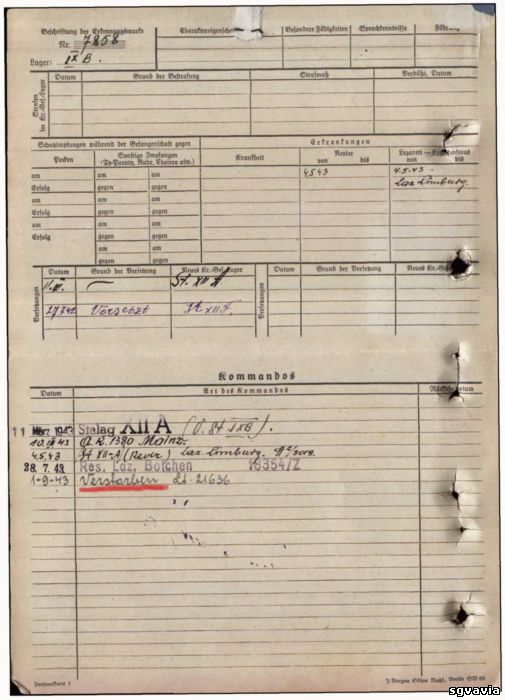 Beschriftung der Erkennungsmarke
Nr. 7858
Lager: IX B.
Charaktereigenschaften
Besondere Fähigkeiten
Sprachkenntnisse
Führung
Strafen im Kr.-Gef.-Lager
Datum Grund der Bestrafung Strafmaß Verbüßt, Datum
Schutzimpfungen während der Gefangenschaft gegen
Erkrankungen
Pocken
Sonstige Impfungen
(Ty-Paraty, Ruhr, Cholera usw.)
Krankheit
Revier
von bis
Lazarett —
von bis
am am 4.5.43 4.5.43
Erfolg gegen Laz Limburg.
am am
Erfolg gegen
am am
Erfolg gegen
am
gegen
Versetzungen
Datum Grund der Versetzung Neues Kr.-Gef.-Lager
Versetzungen
Datum Grund der Versetzung Neues Kr.-Gef.
St. XII A
Versetzt St XII F.
Kommandos
Datum Art des Kommandos
11 März 1943 Stalag XII A (V. St IXB).
A.K. 1380 Mainz.
4.5.43 St XII-A (Revier) Laz Limburg.
28. 7. 43 Res. Laz. Bolchen 18354/Z
1-9-43 Verstorben 21636
Personalkarte I
J. Bergas Söhne Nachf., Berlin SW 68
sgvavia